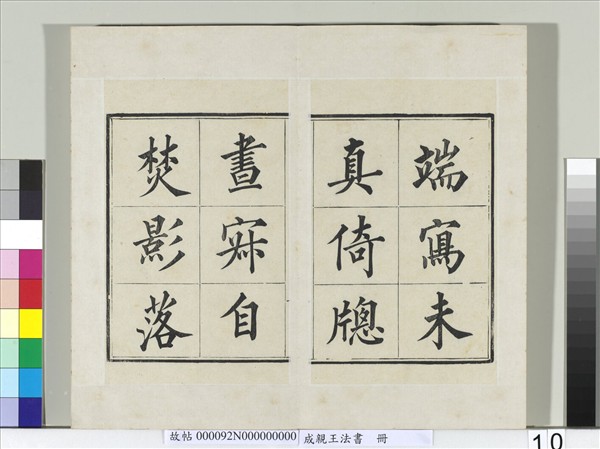 端寫未
真倚牕
晝寐自
焚影落
故帖 000092N000000000 成親王法書 冊
10